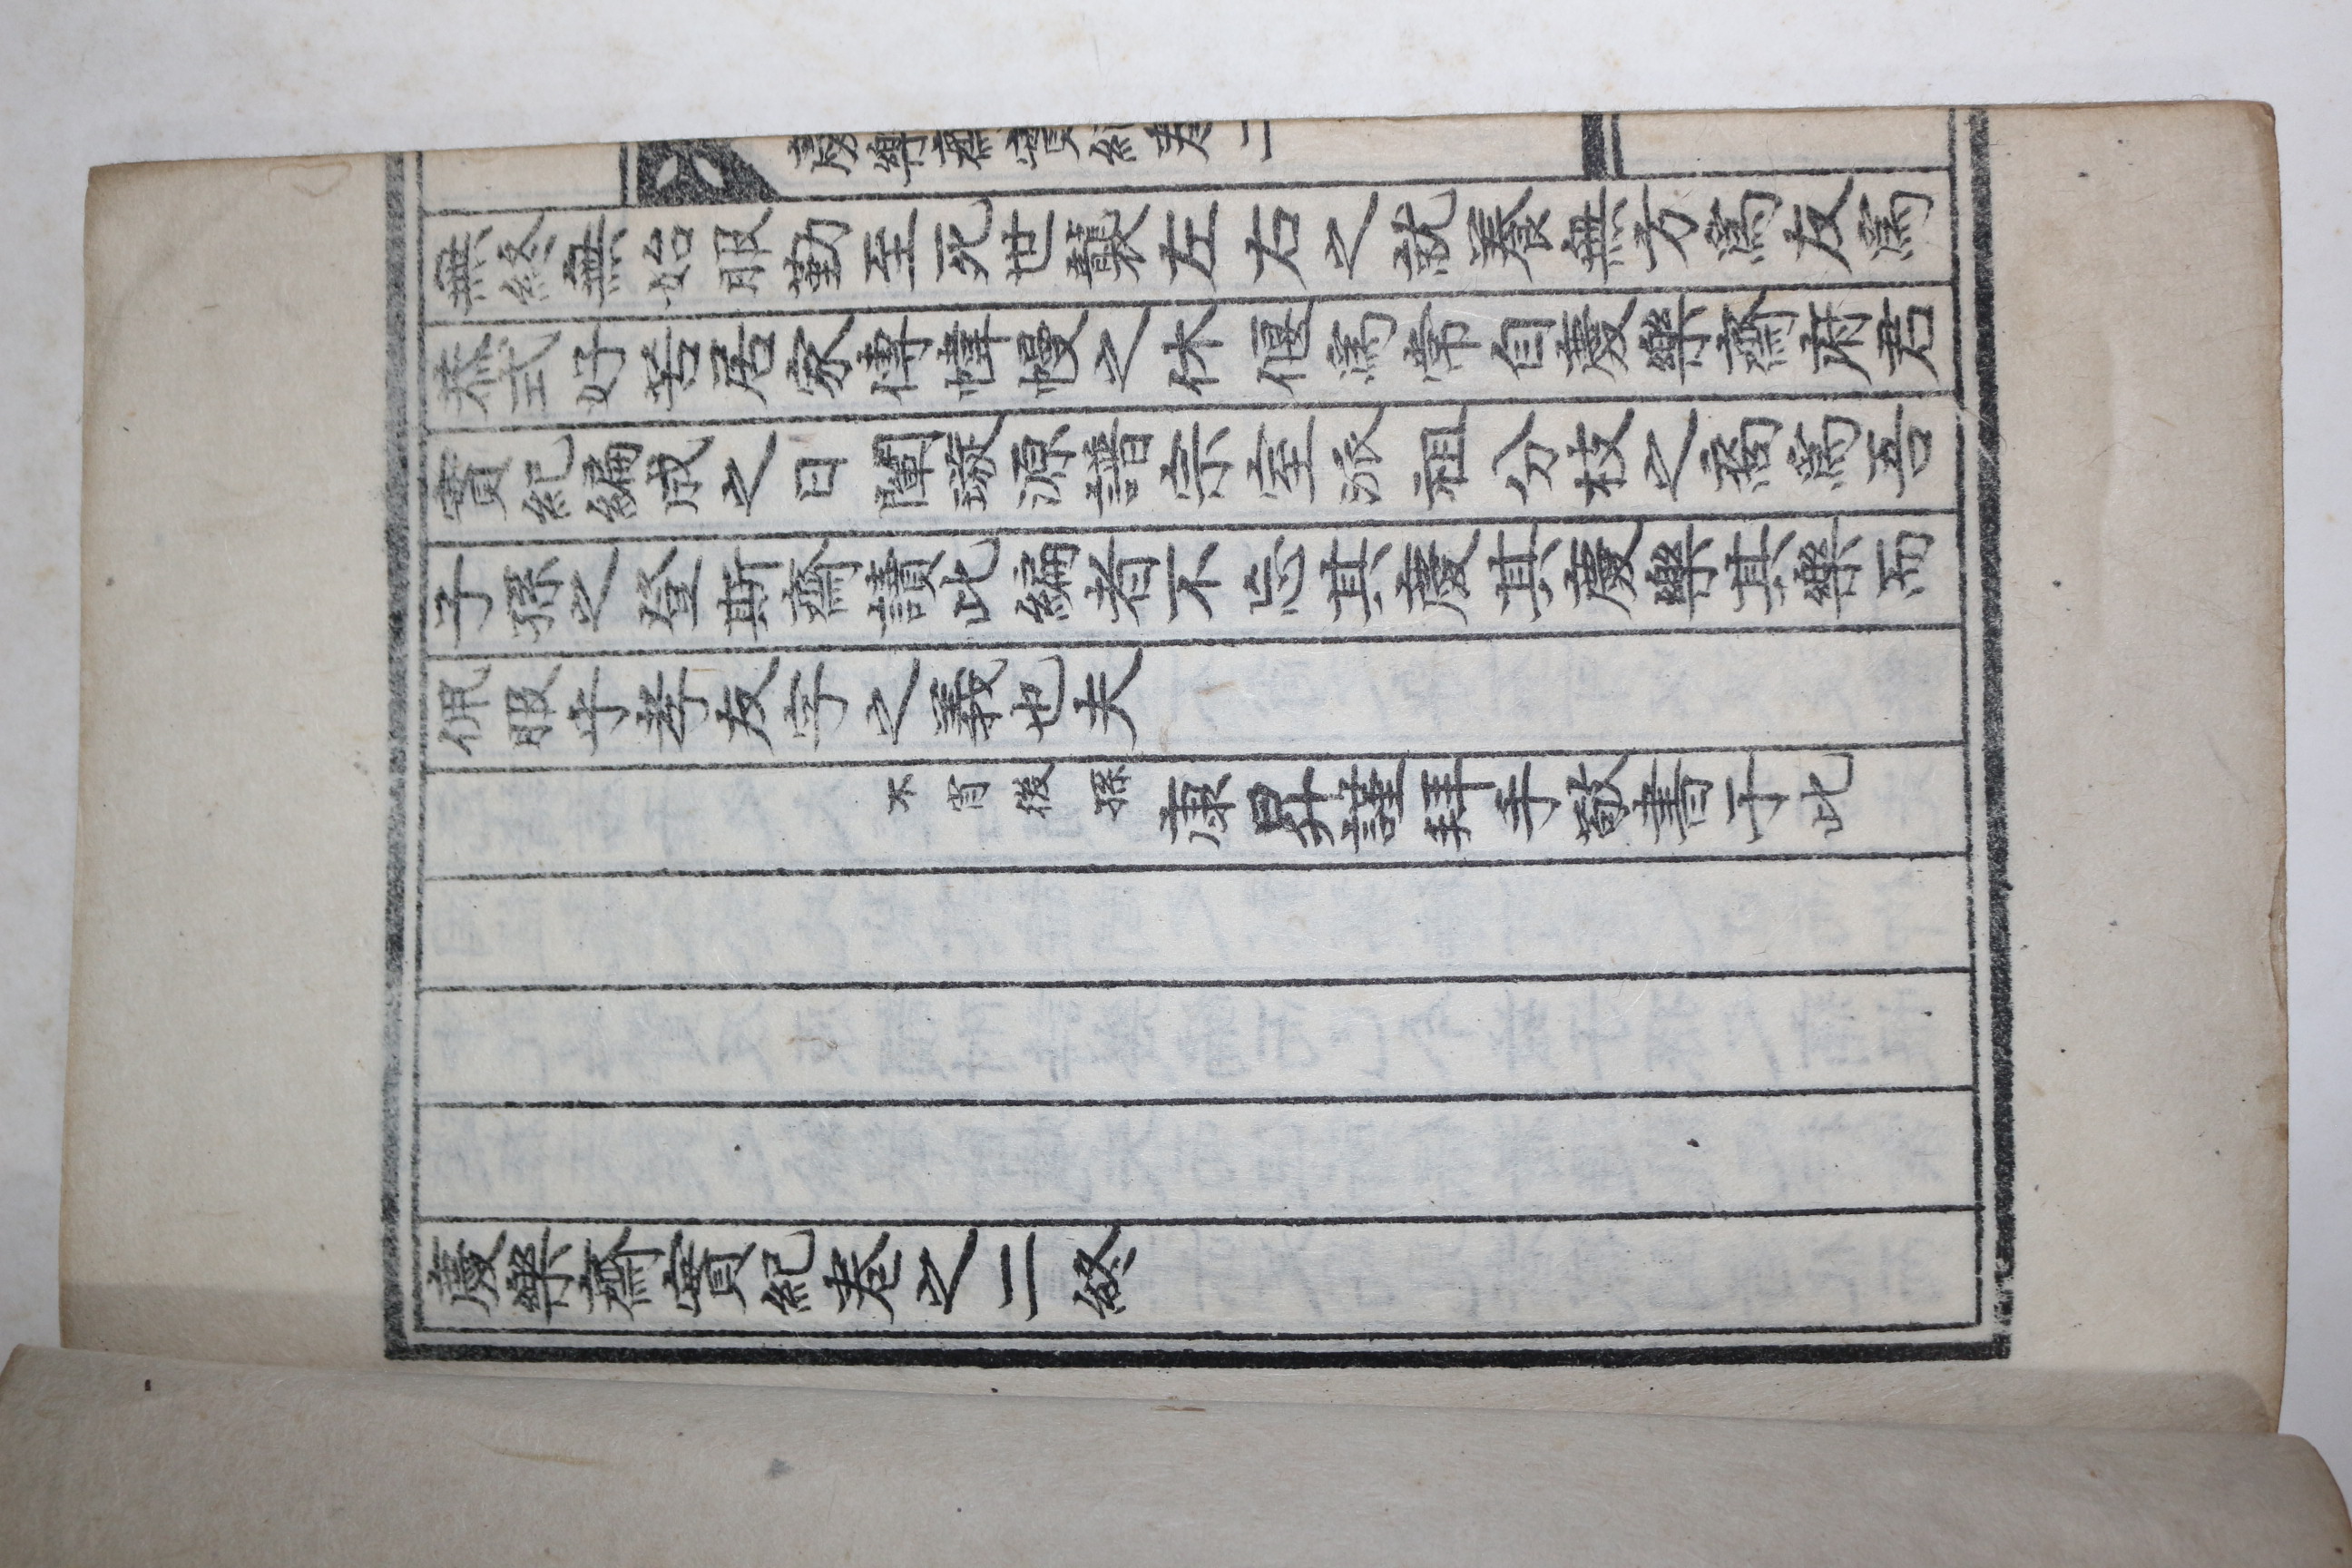 慶樂齋實紀卷二
無終無始服勤至死世襲左右之就養無方爲友爲
恭式好苦居家傳幃幔之休偃爲常自慶樂齋府君
實紀編成之日闡璇源譜宗室派祖分枝之裔爲吾
子孫之登斯齋讀此編者不忘其慶其慶樂其樂而
佩服乎孝友字之義也夫
不肖後孫康昇謹拜手敬書于此
慶樂齋實紀卷之二終